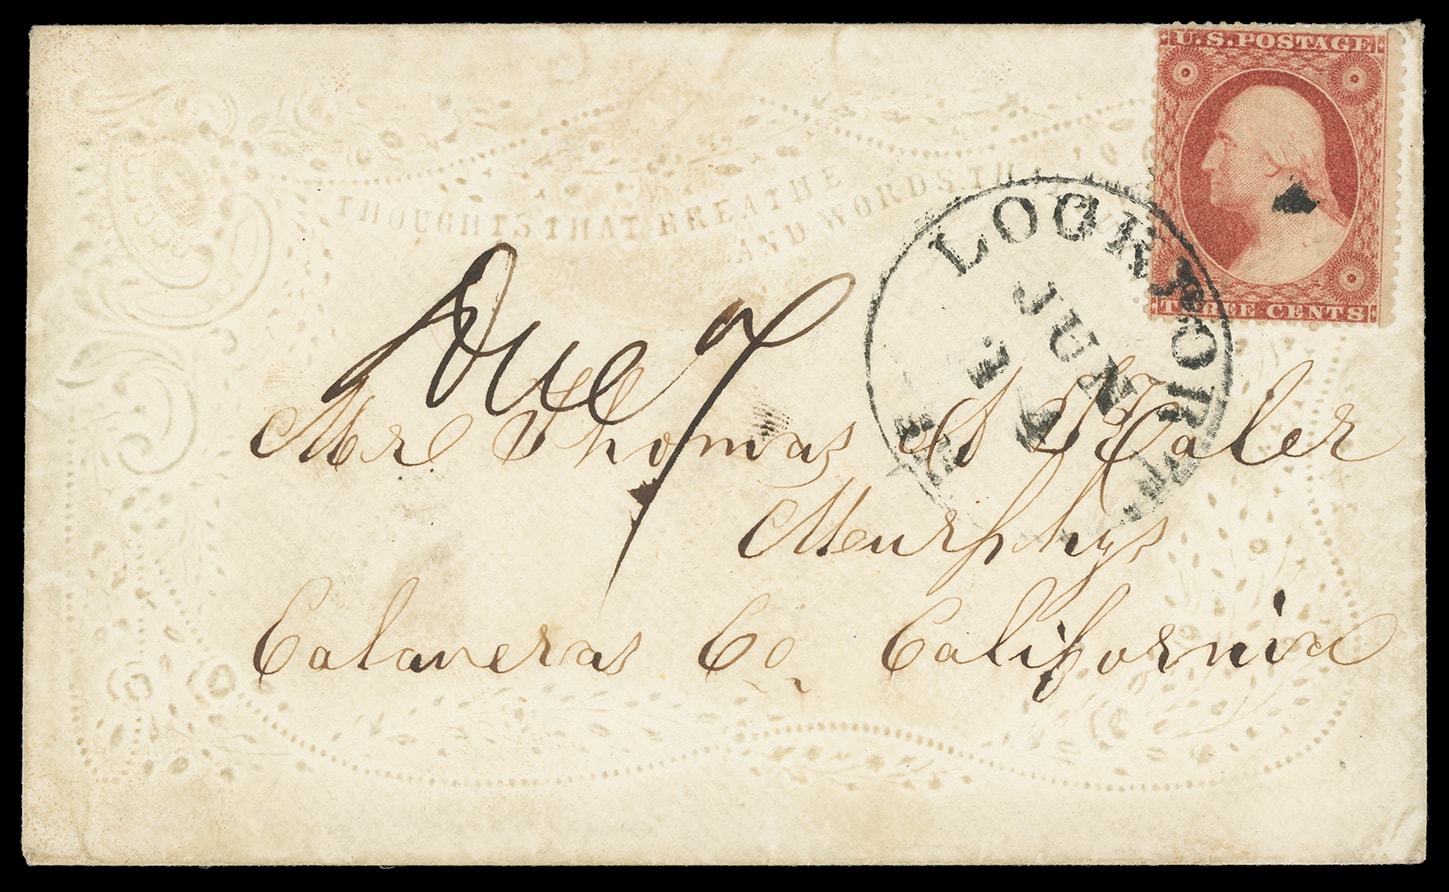 U.S. POSTAGE
THREE CENTS
THOUGHTS THAT BREATHE
AND WORDS THAT
LOCKPORT
JUN
4
Due 7
Mr Thomas A Haler
Murphys
Calaveras Co
California